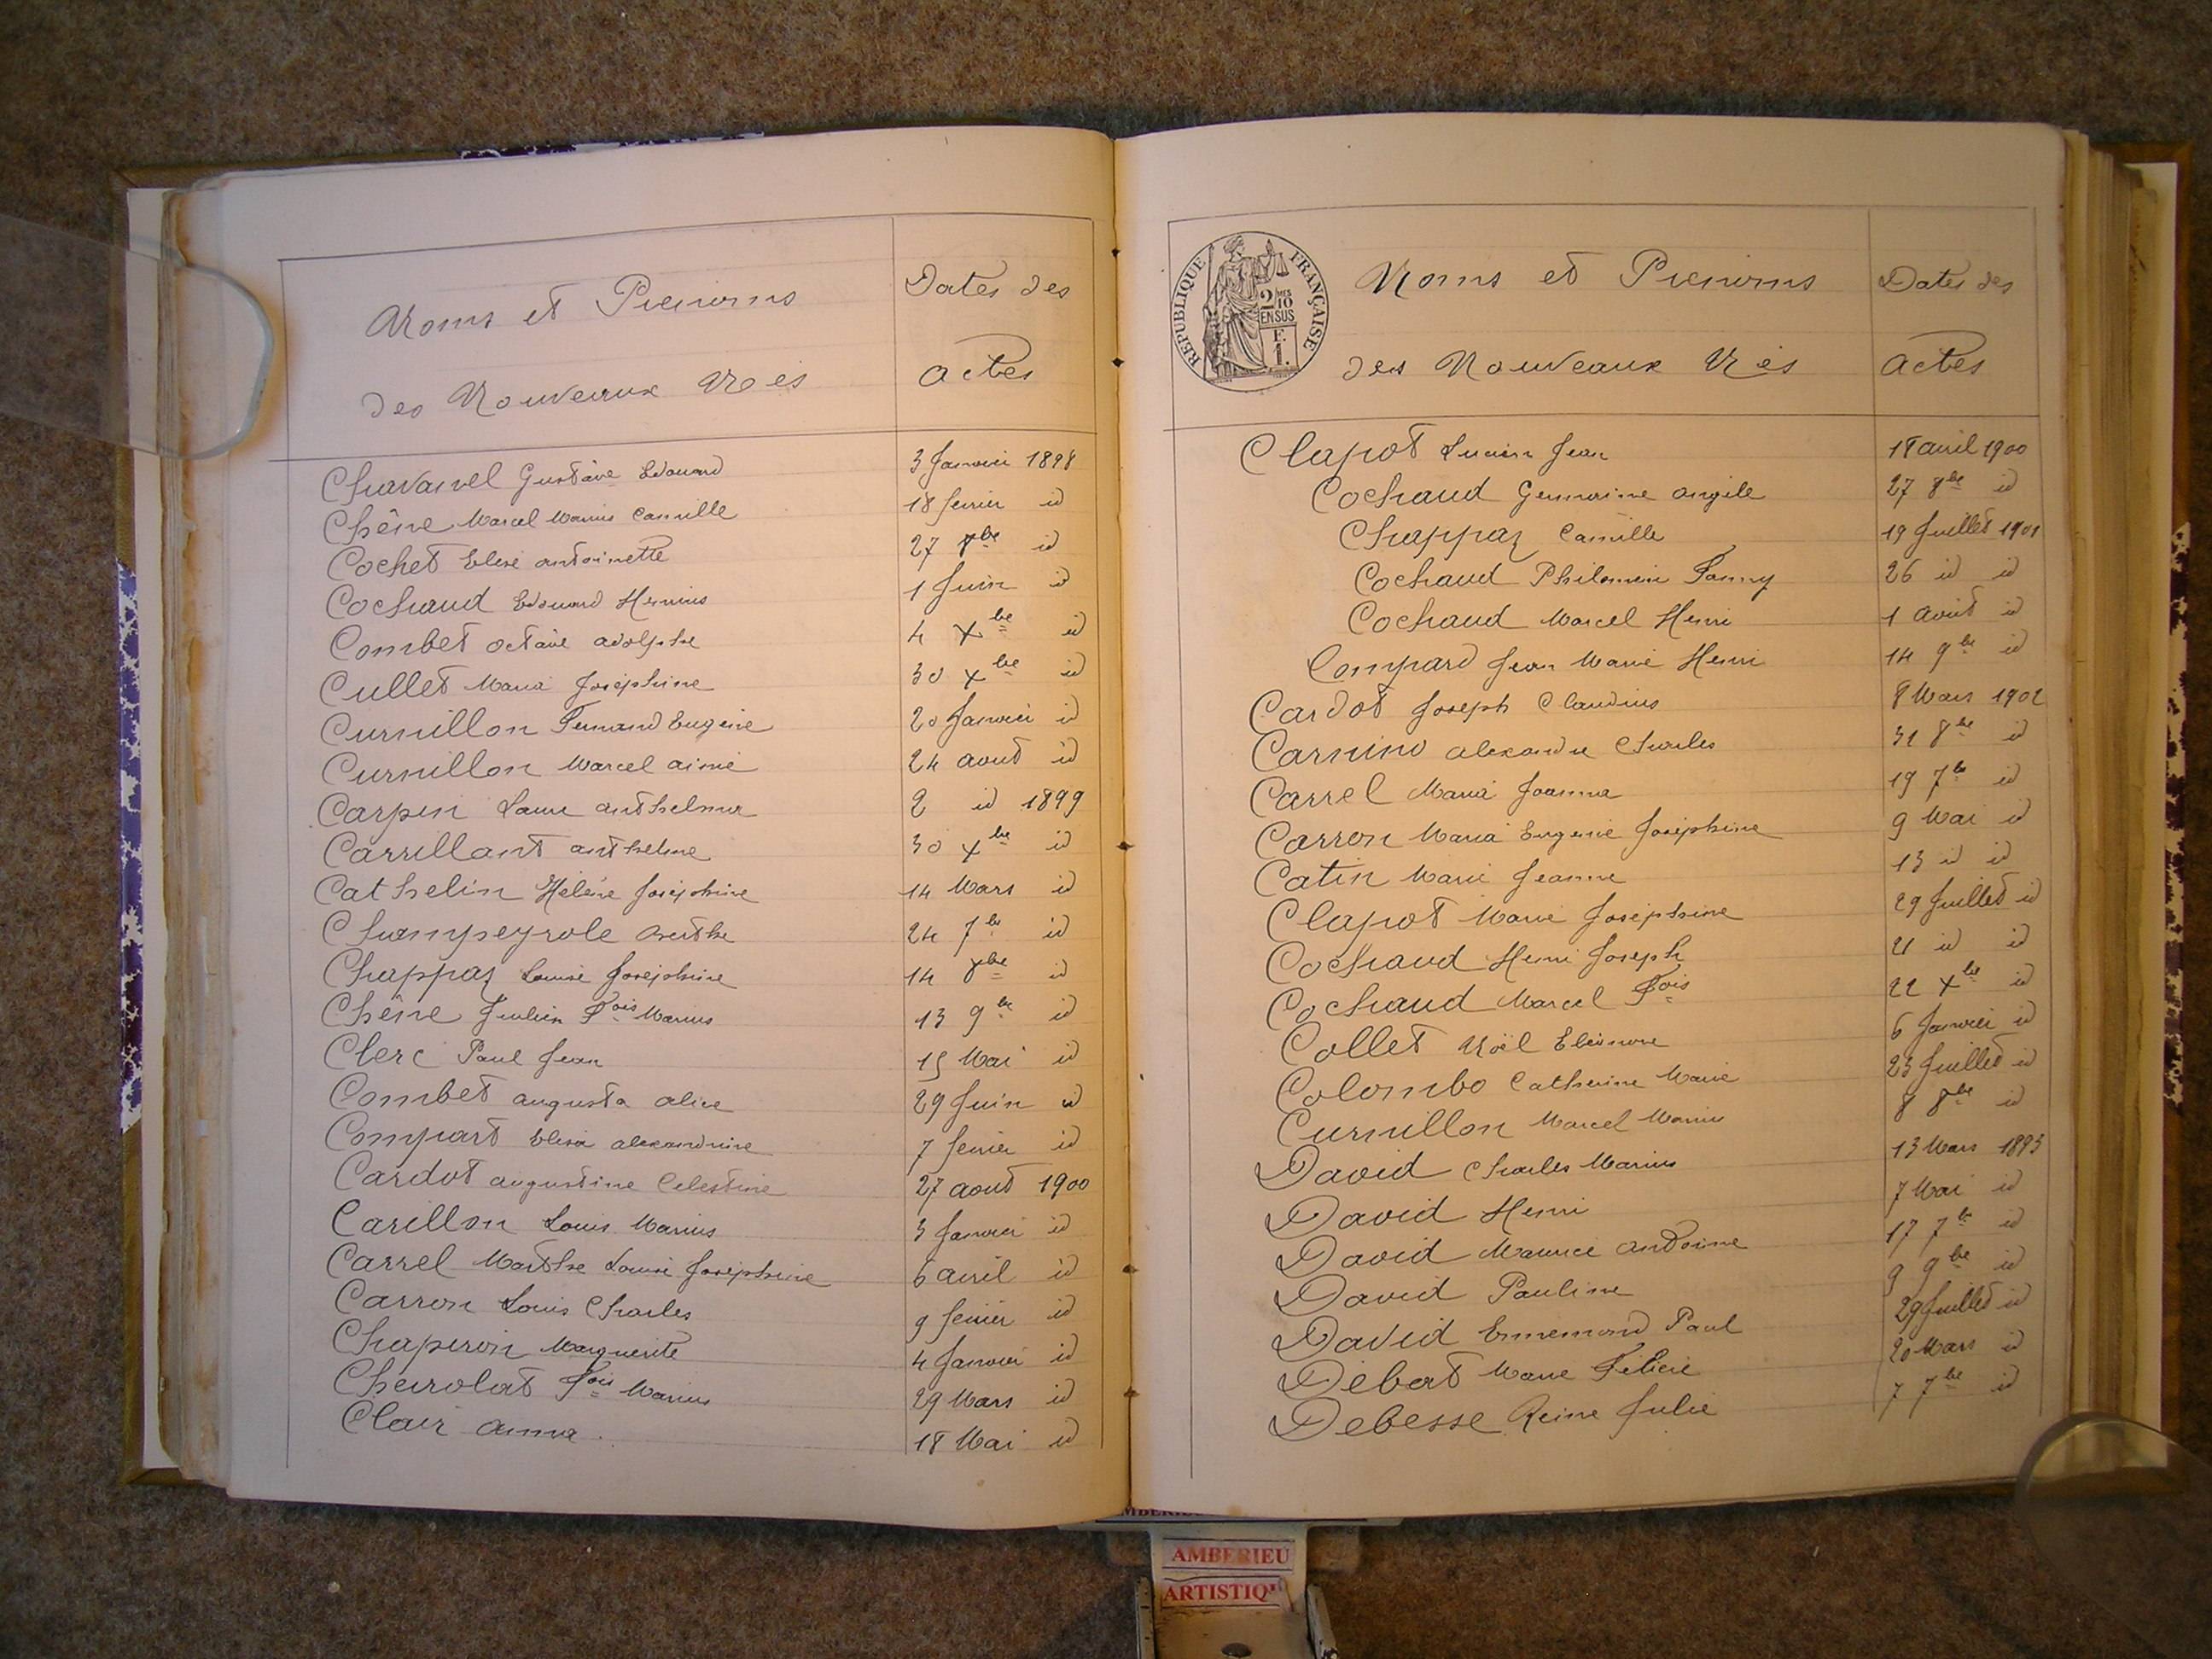 Noms et Prenoms
des Nouveaux Nés
Dates des
actes
Chavanel Gustave Edouard 3 Janvier 1898
Chêne Marcel Marius Camille 18 fevrier id
Cochet Elise antoinette 27 8bre id
Cochaud Edouard 1 Juin id
Combet octave adolphe 4 Xbre id
Cullet Maria Joséphine 30 Xbre id
Curnillon Fernand Eugene 20 Janvier id
Curnillon Marcel aimé 24 aout id
Carpin Laure anthelma 2 id 1899
Carrillant anthelme 30 Xbre id
Cathelin Hélène Joséphine 14 Mars id
Champeyrole Berthe 24 7bre id
Chappaz Louise Joséphine 14 8bre id
Chêne Julien Fois Marius 13 9bre id
Clerc Paul Jean 15 Mai id
Combet augusta alice 29 Juin id
Compart Elisa alexandrine 7 fevrier id
Cardot augustine Celestine 27 aout 1900
Carillon Louis Marius 3 Janvier id
Carrel Marthe Louise Joséphine 6 avril id
Carron Louis Charles 9 fevrier id
Chaperon Marguerite 4 Janvier id
Cheirolat Fois Marius 29 Mars id
Clair anna 18 Mai id
RÉPUBLIQUE FRANÇAISE
2/10 MES
EN SUS
F.
1.
Noms et Prenoms
des Nouveaux Nés
Dates des
actes
Clapot Lucien Jean 18 avril 1900
Cochaud Germaine angèle 27 8bre id
Chappaz Camille 19 Juillet 1901
Cochaud Philomène Fanny 26 id id
Cochaud Marcel Henri 1 aout id
Compard Jean Marie Henri 14 9bre id
Cardot Joseph Claudius 8 Mars 1902
Carnino alexandre Charles 31 8bre id
Carrel Maria Joanna 19 7bre id
Carron Maria Eugenie Joséphine 9 Mai id
Catin Marie Jeanne 13 id id
Clapot Marie Joséphine 29 Juillet id
Cochaud Henri Joseph 21 id id
Cochaud Marcel Fois 22 Xbre id
Collet Noël Eléonore 6 Janvier id
Colombo Catherine Marie 23 Juillet id
Curnillon Marcel Marius 8 8bre id
David Charles Marius 13 Mars 1893
David Henri 7 Mai id
David Maurice antoine 17 7bre id
David Pauline 9 9bre id
David Ennemond Paul 29 Juillet id
Debert Marie Félicie 20 Mars id
Debesse Reine Julie 7 7bre id
AMBERIEU
ARTISTIQU